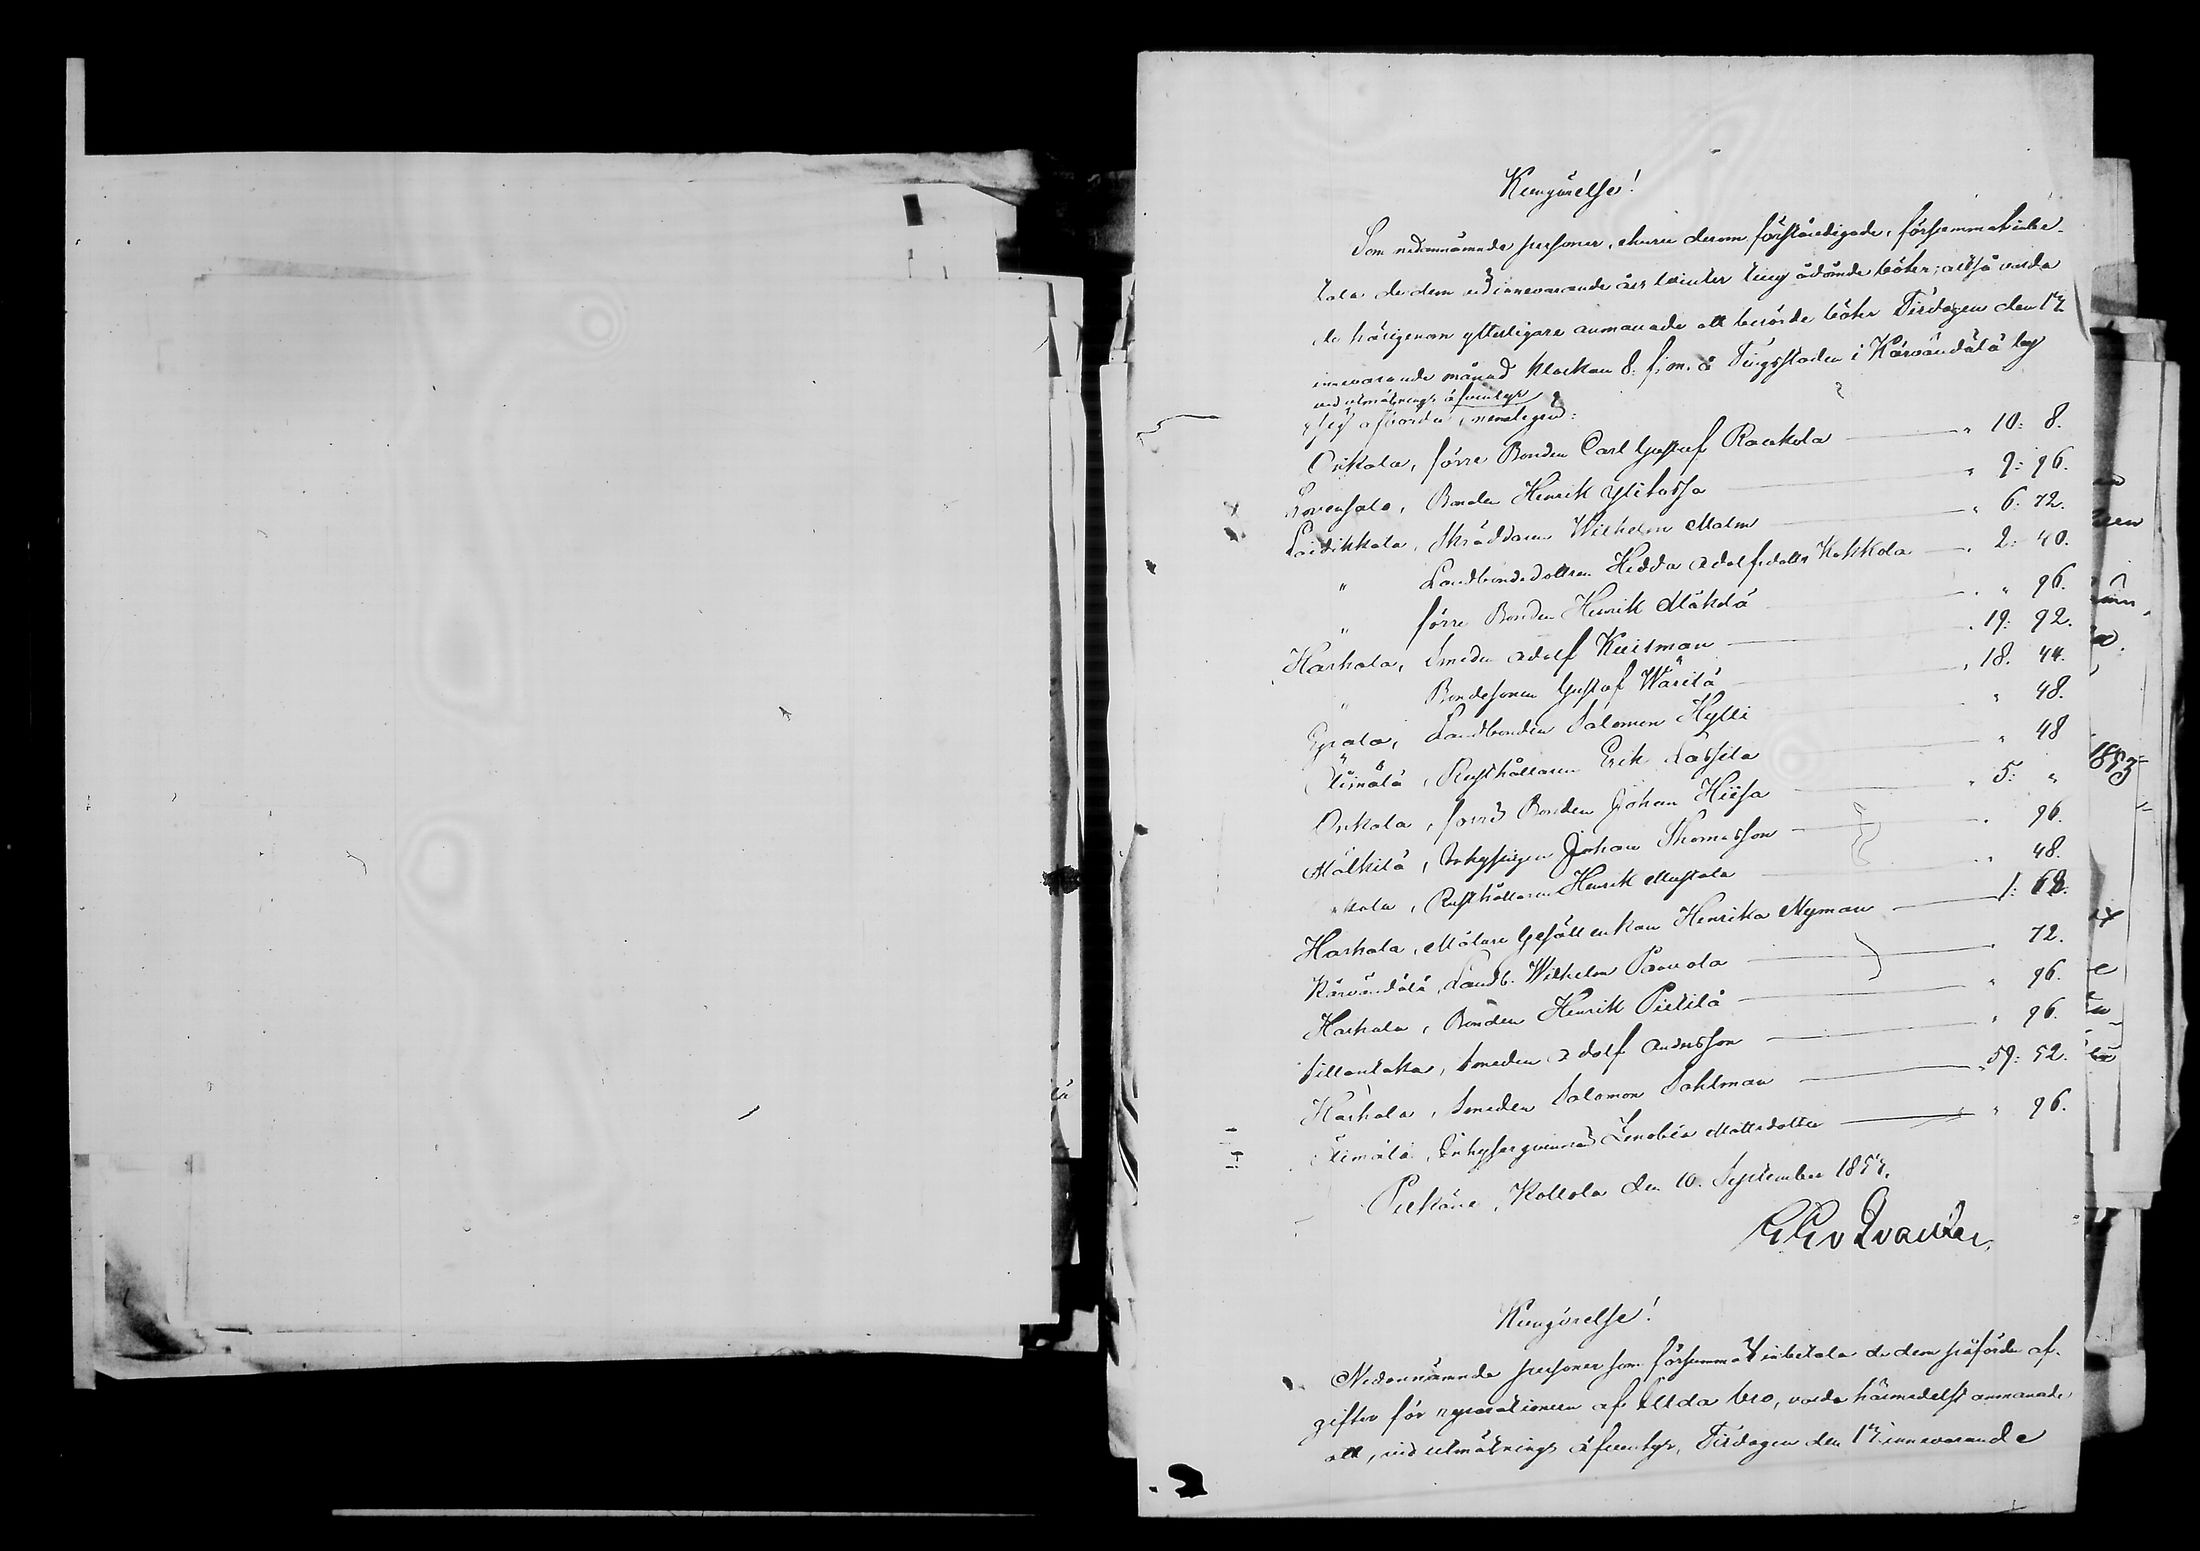 Kungörelse!
Som nedannämnde personer, ehuru derom förständigade, försummat inbe-
tala de dem vid innevarande års winter ting ådömde böter; altså warda
de härigenom ytterligare anmanade att berörde böter Tisdagen den 17
innevarande månad klockan 8. f. m. å Tingsstaden i Kärwändälä by
vid utmätnings äfventyr
, nemligen:
Onkala, förre Bonden Carl Gustaf Raukola " 10: 8.
Bonden Henrik Ylitassa " 9: 96.
Laidikkala, Skräddaren Wilhelm Malm " 6. 72.
" Landbondedottren Hedda Adolfsdotter Kokkola " 2: 40.
" förre Bonden Henrik Mäkelä " " 96.
Harhala, Smeden Adolf Kuitman " 19: 92.
" Bondesonen Gustaf Wärilä " 18. 44.
Landbonden Salomon Hylli " 48.
Rusthållaren Erik Lassila " 48
Onkala, förre Bonden Johan Hiisa " 5: "
Mälkilä, Inhysingen Johan Thomasson " 96.
Rusthållaren Henrik Mustala " 48.
Harhala, Målare Gesäll enkan Henrika Nyman 1: 68.
Kärwändälä, Landb. Wilhelm Pauola " 72.
Harhala, Bonden Henrik Pietilä " 96.
Sillantaka, Smeden Adolf Andersson " 96.
Harhala, Smeden Salomon Dahlman " 59: 52.
Inhysesqvinnan Zenobia Mattsdotter " 96.
Pelkäne, Kollola den 10. September 1857.
Kungörelse!
Nedannämnde personer som försummat inbetala de dem påförde af-
gifter för reparationen af bro, warda härmedelst anmanade
att, vid utmätnings äfventyr, Tisdagen den 17 innevarande
1853